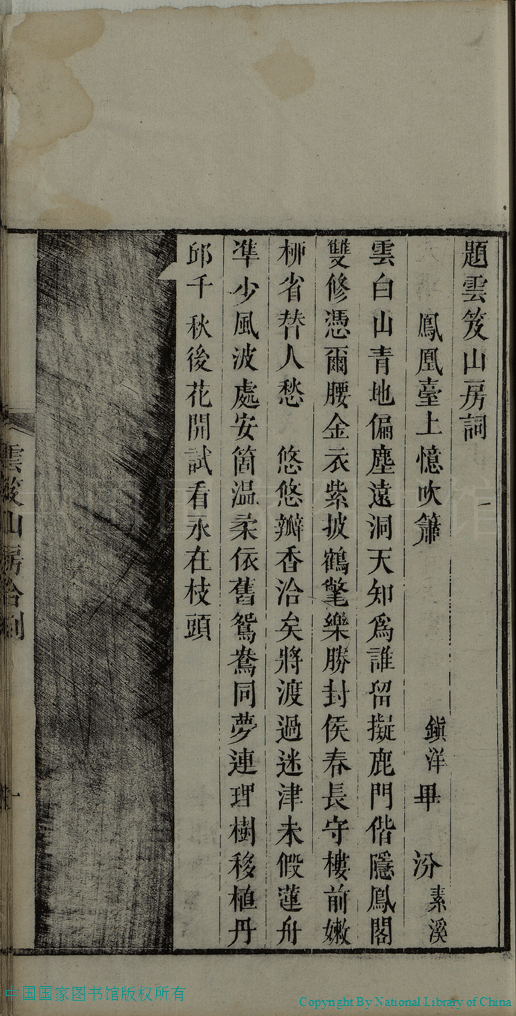 題雲笈山房詞
鳳凰臺上憶吹簫 鎮洋畢 汾素溪
雲白山青地偏塵遠洞天知爲誰留擬鹿門偕隱鳳閣
雙修憑爾腰金衣紫披鶴氅樂勝封侯春長守樓前嫩
柳省替人愁 悠悠瓣香洽矣將渡過迷津未假蓮舟
準少風波處安箇温柔依舊鴛鴦同夢連理樹移植丹
邱千秋後花開試看永在枝頭
雲笈山房合刻
中国国家图书馆版权所有
Copyright By National Library of China